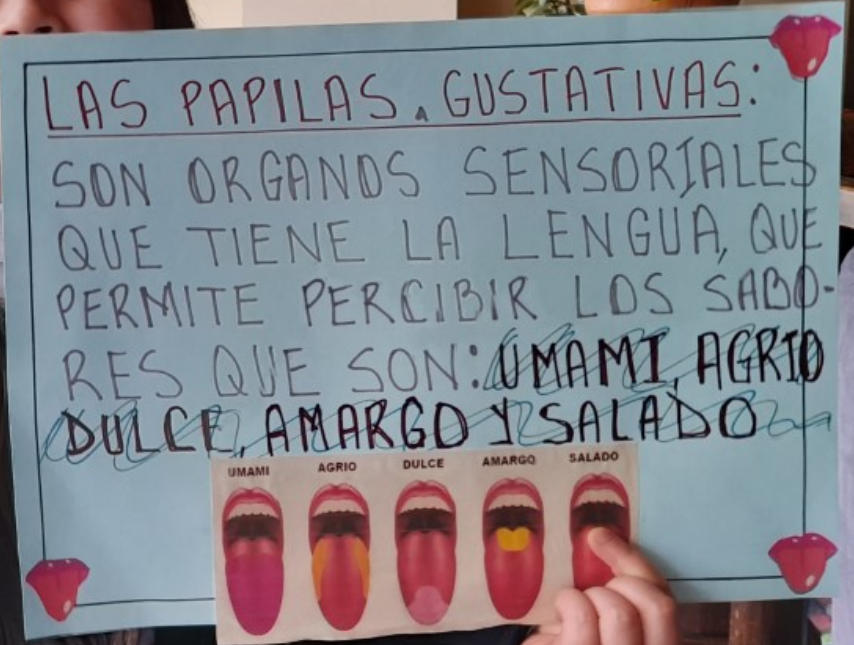 LAS PAPILAS GUSTATIVAS:
SON ORGANOS SENSORIALES
QUE TIENE LA LENGUA, QUE
PERMITE PERCIBIR LOS SABO-
RES QUE SON: UMAMI, AGRIO
DULCE, AMARGO Y SALADO
UMAMI AGRIO DULCE AMARGO SALADO